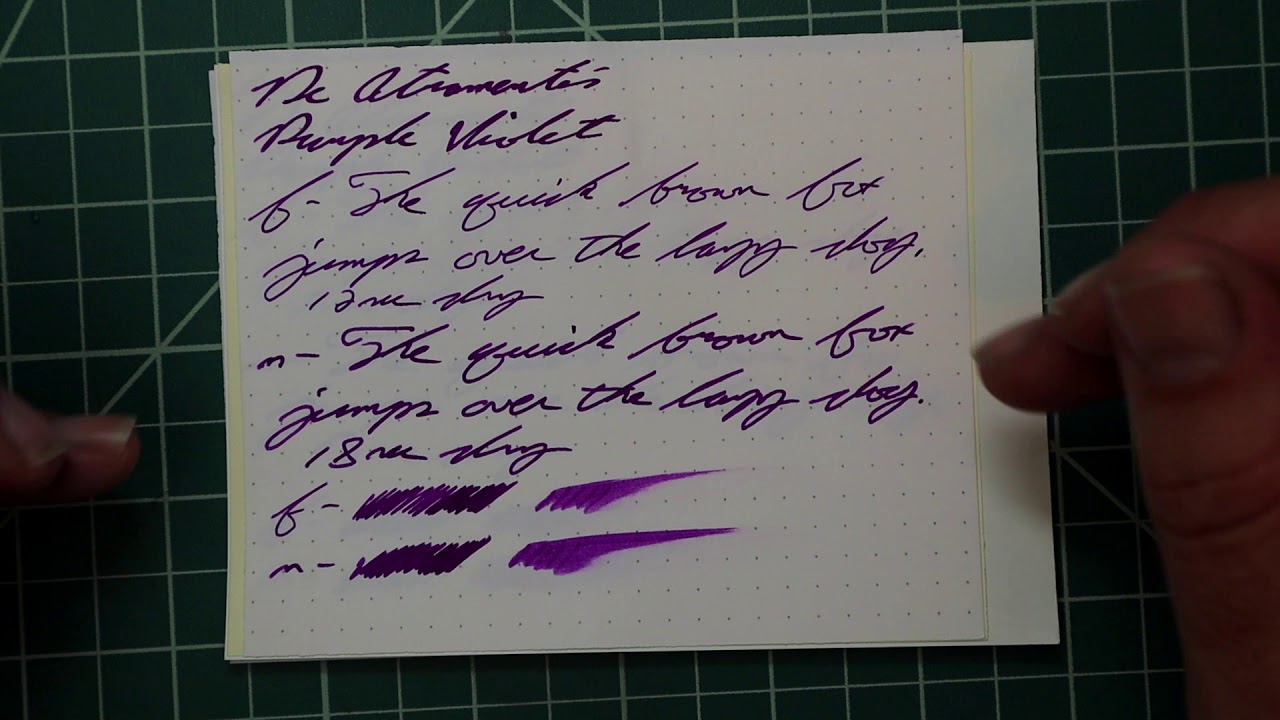 De Atramentis
Purple Violet
f- The quick brown fox
jumps over the lazy dog.
12 sec dry
m- The quick brown fox
jumps over the lazy dog.
18 sec dry
f-
m-